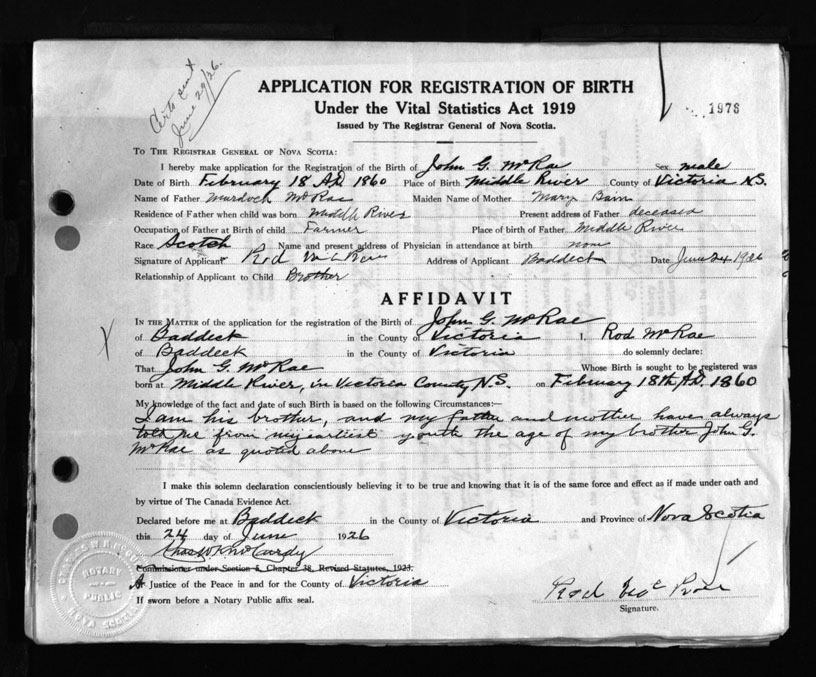 Cert sent
June 29/26.
APPLICATION FOR REGISTRATION OF BIRTH
Under the Vital Statistics Act 1919
Issued by The Registrar General of Nova Scotia.
1976
To The Registrar General of Nova Scotia:
I hereby make application for the Registration of the Birth of John G. McRae Sex male
Date of Birth February 18 A.D. 1860 Place of Birth Middle River County of Victoria N.S.
Name of Father Murdoch McRae Maiden Name of Mother Mary Bain
Residence of Father when child was born Middle River Present address of Father deceased
Occupation of Father at Birth of child Farmer Place of birth of Father Middle River
Race Scotch Name and present address of Physician in attendance at birth non
Signature of Applicant Rod McRae Address of Applicant Baddeck Date June 24 1926
Relationship of Applicant to Child Brother
AFFIDAVIT
In the Matter of the application for the registration of the Birth of John G. McRae
of Baddeck in the County of Victoria I, Rod McRae
of Baddeck in the County of Victoria do solemnly declare:
That John G. McRae Whose Birth is sought to be registered was
born at Middle River, in Victoria County, N.S. on February 18th A.D. 1860
My knowledge of the fact and date of such Birth is based on the following Circumstances:—
I am his brother, and my father and mother have always
told me from my earliest youth the age of my brother John G.
McRae as quoted above
I make this solemn declaration conscientiously believing it to be true and knowing that it is of the same force and effect as if made under oath and
by virtue of The Canada Evidence Act.
Declared before me at Baddeck in the County of Victoria and Province of Nova Scotia
this 24 day of June 1926
Commissioner under Section 5, Chapter 38, Revised Statutes, 1923.
A Justice of the Peace in and for the County of Victoria
If sworn before a Notary Public affix seal.
Rod McRae
Signature.
NOTARY
PUBLIC
NOVA SCOTIA